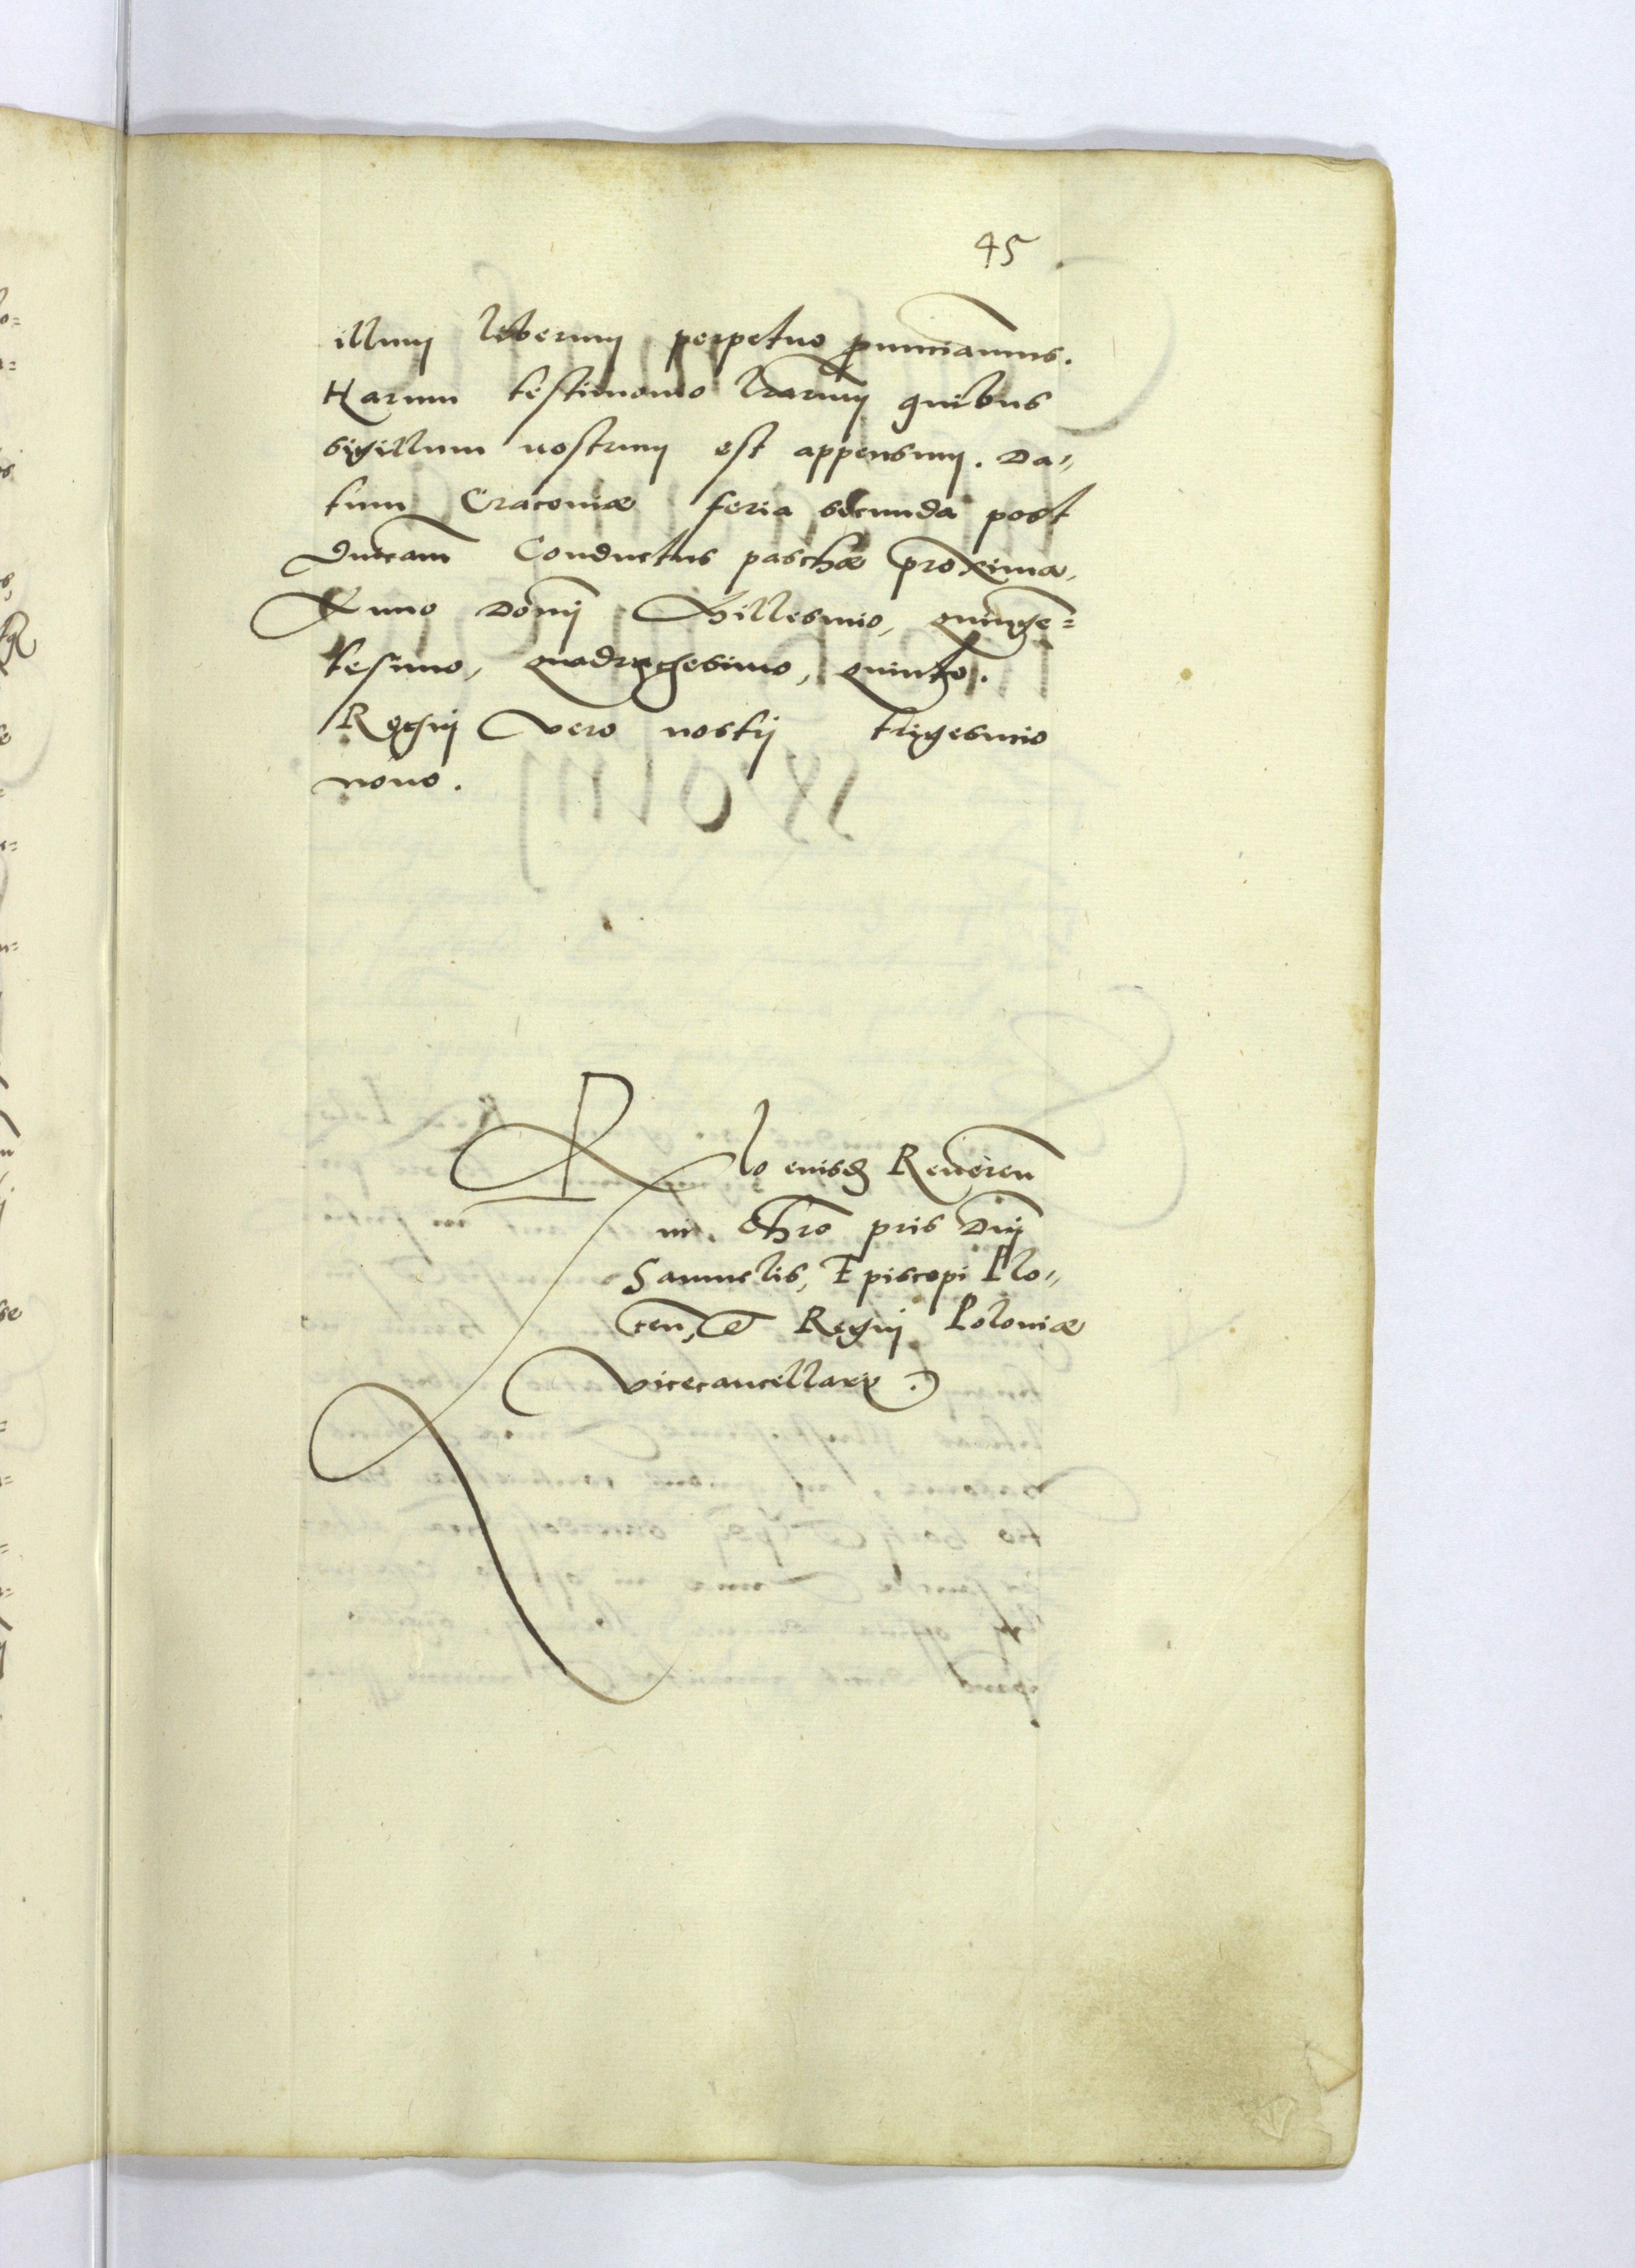 45
illum liberum perpetuo pronunciamus.
Harum testimonio lrarum quibus
sigillum nostrum est appensum. Da-
tum Cracoviæ feria secunda post
Dnicam Conductus paschæ proxima,
Anno Domi Millesimo, quinge=
tesimo, quadragesimo, quinto.
Regni Vero nostri trigesimo
nono.
Rlo eiusd Reveren
in Chro pris Dni
Samuelis, Episcopi Plo-
cen, et Regni Poloniæ
Vicecancellarii